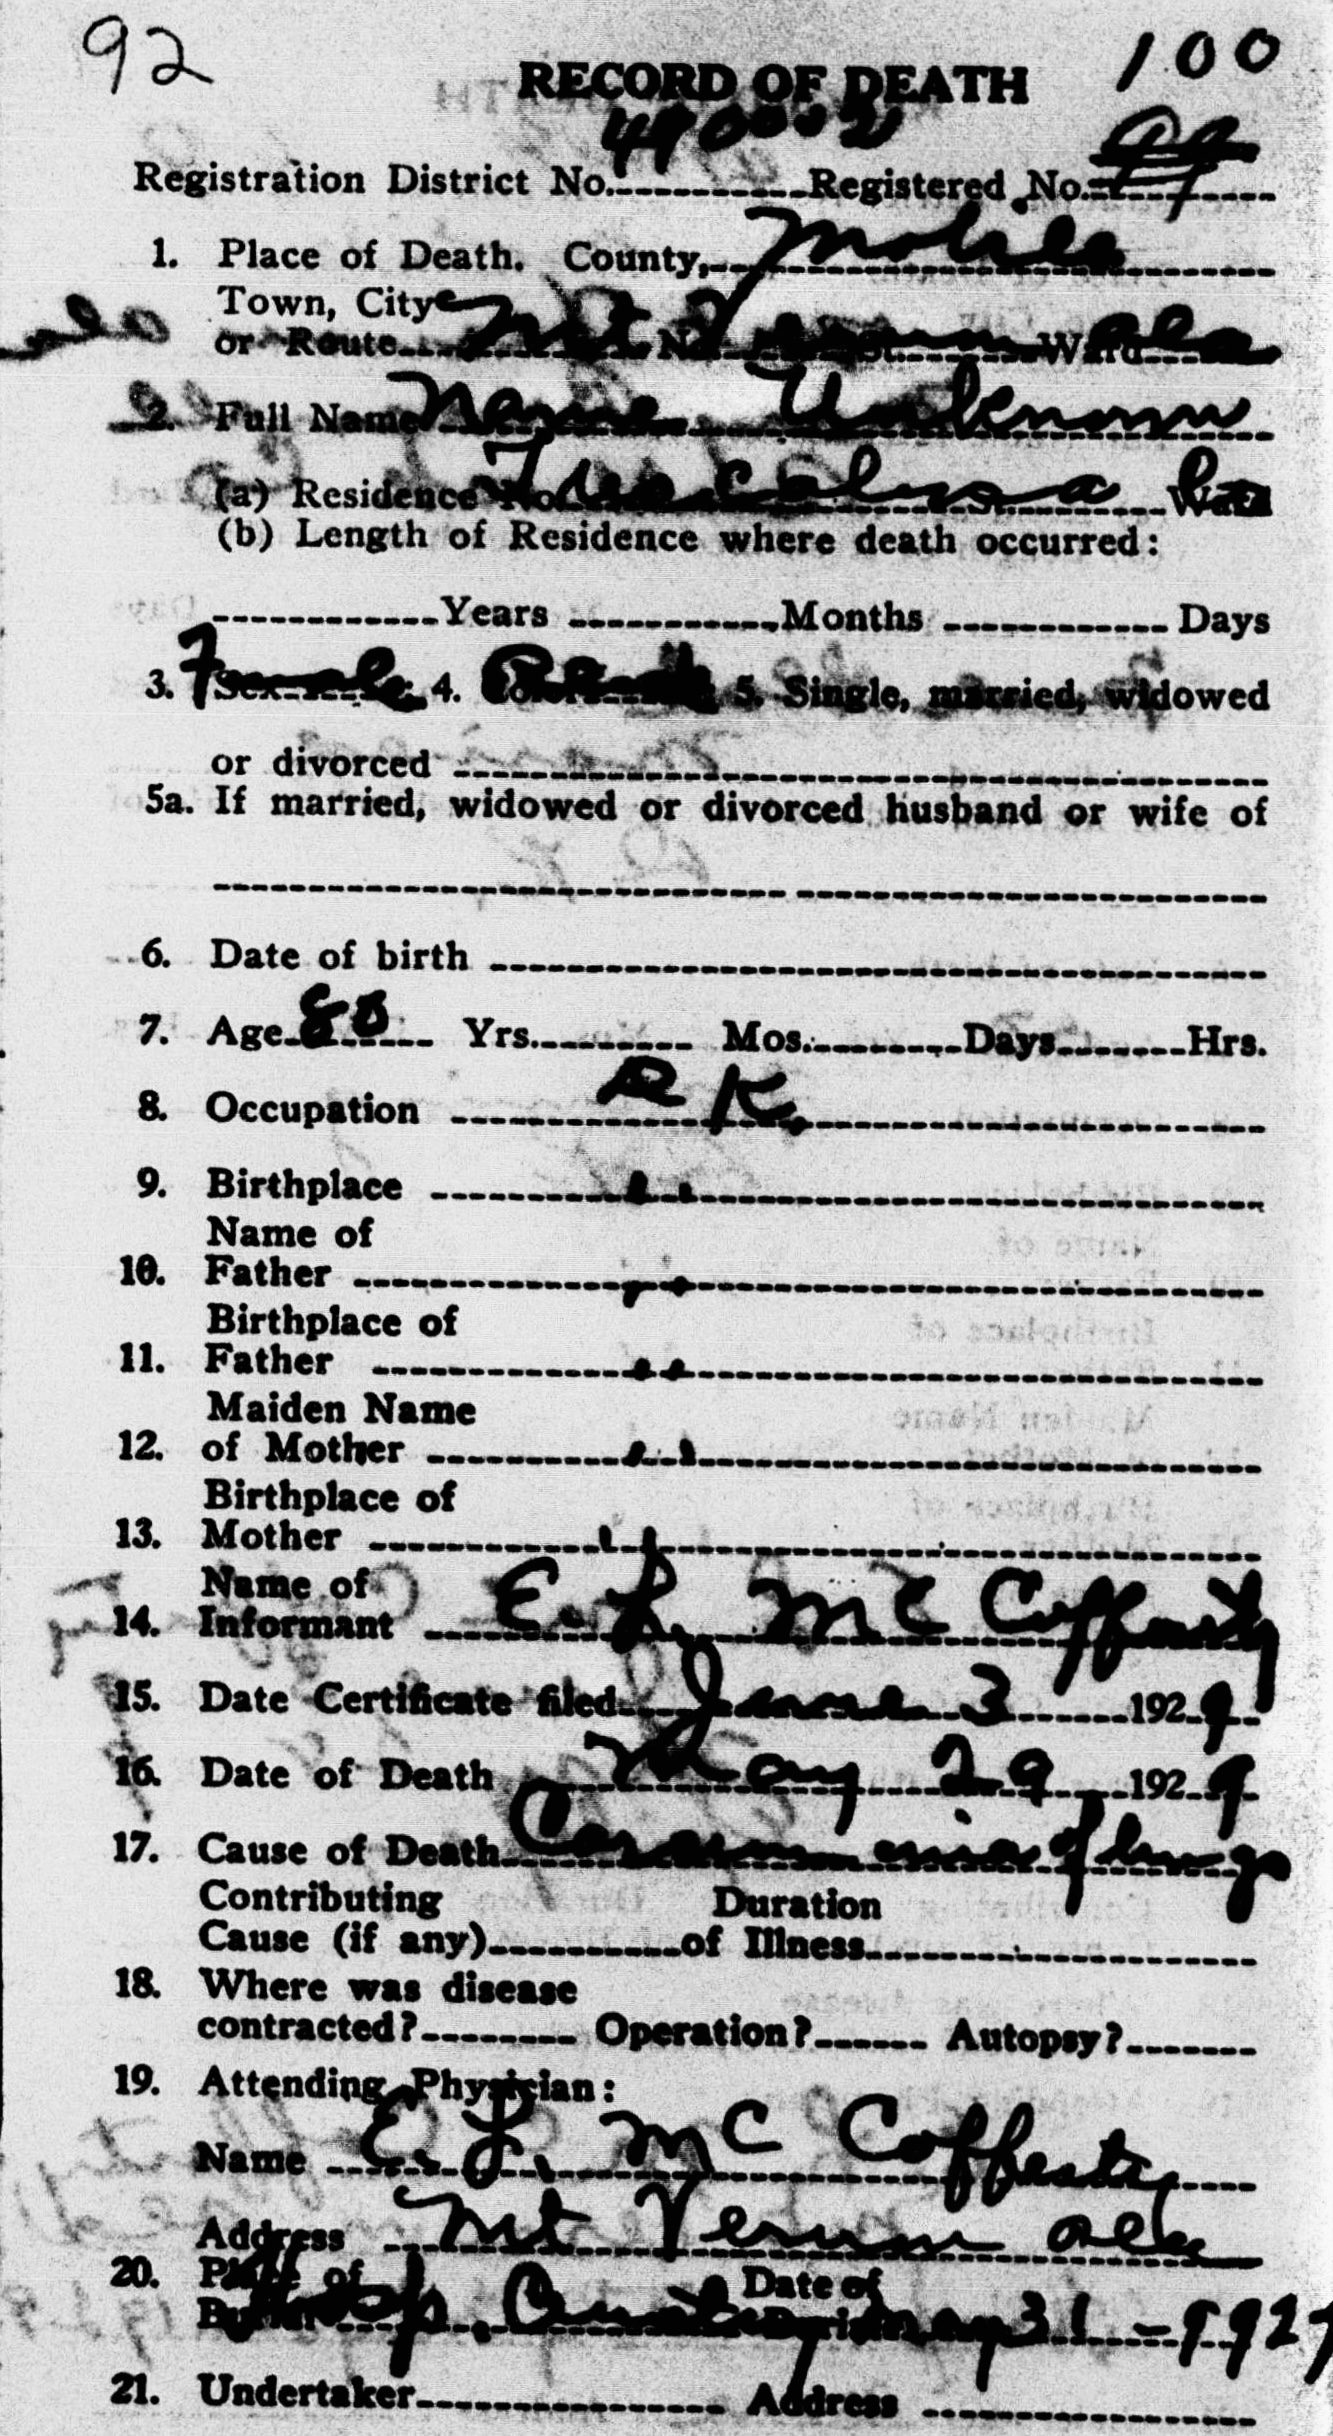 92
100
RECORD OF DEATH
490002
Registration District No. Registered No. 99
1. Place of Death. County, Mobile
Town, City
or Route Mt Vernon No. St. Ward Ala
2. Full Name Name Unknown
(a) Residence No. Tuscaloosa St. Ward Co
(b) Length of Residence where death occurred:
Years Months Days
3. Sex Female 4. Color 5. Single, married, widowed
or divorced
5a. If married, widowed or divorced husband or wife of
6. Date of birth
7. Age 80 Yrs. Mos. Days Hrs.
8. Occupation D K.
9. Birthplace "
Name of
10. Father "
Birthplace of
11. Father "
Maiden Name
12. of Mother "
Birthplace of
13. Mother "
Name of
14. Informant E. L. Mc Cafferty
15. Date Certificate filed June 3 1929
16. Date of Death May 29 1929
17. Cause of Death of lungs
Contributing Duration
Cause (if any) of Illness
18. Where was disease
contracted? Operation? Autopsy?
19. Attending Physician:
Name E. L. Mc Cafferty
Address Mt Vernon Ala
20. Place of Date of
Burial Hosp. Cemetery Burial May 31 - 1929
21. Undertaker Address